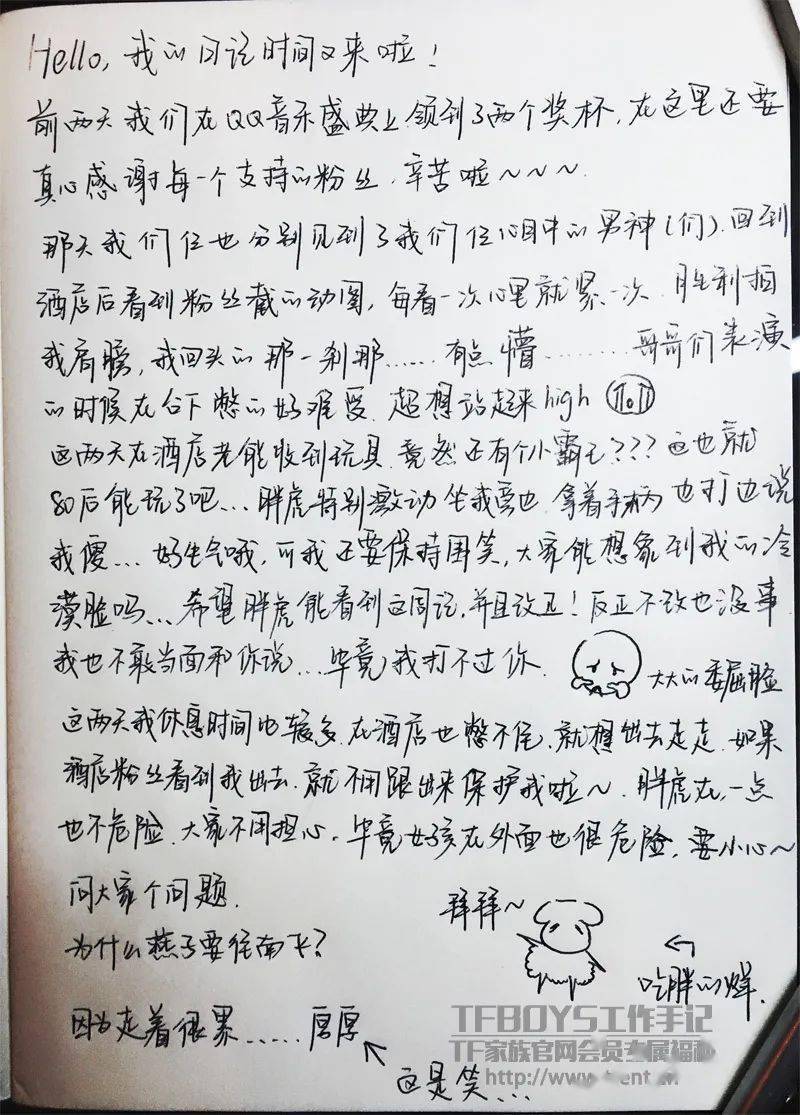 Hello, 我的周记时间又来啦!
前两天我们在QQ音乐盛典上领到了两个奖杯,在这里还要
真心感谢每一个支持的粉丝.辛苦啦~~~
那天我们仨也分别见到了我们仨心目中的男神(们).回到
酒店后看到粉丝截的动图,每看一次心里就紧一次.胜利拍
我肩膀,我回头的那一刹那……有点懵………哥哥们表演
的时候在台下憋的好难受.超想站起来high
这两天在酒店老能收到玩具.竟然还有个小霸王???这也就
80后能玩了吧…胖虎特别激动 坐我旁边 拿着手柄 边打边说
我傻…好生气哦,可我还要保持围笑,大家能想象到我的冷
漠脸吗…希望胖虎能看到这周记,并且改正!反正不改也没事
我也不敢当面和你说…毕竟我打不过你.
大大的委屈脸
这两天我休息时间比较多.在酒店也憋不住.就想出去走走.如果
酒店粉丝看到我出去.就不用跟出来保护我啦~.胖虎在,一点
也不危险.大家不用担心.毕竟女孩在外面也很危险.要小心~
问大家个问题.
拜拜~
为什么燕子要往南飞?
吃胖的烊.
因为走着很累…… 厚厚
这是笑…
TFBOYS工作手记
TF家族官网会员专属福利